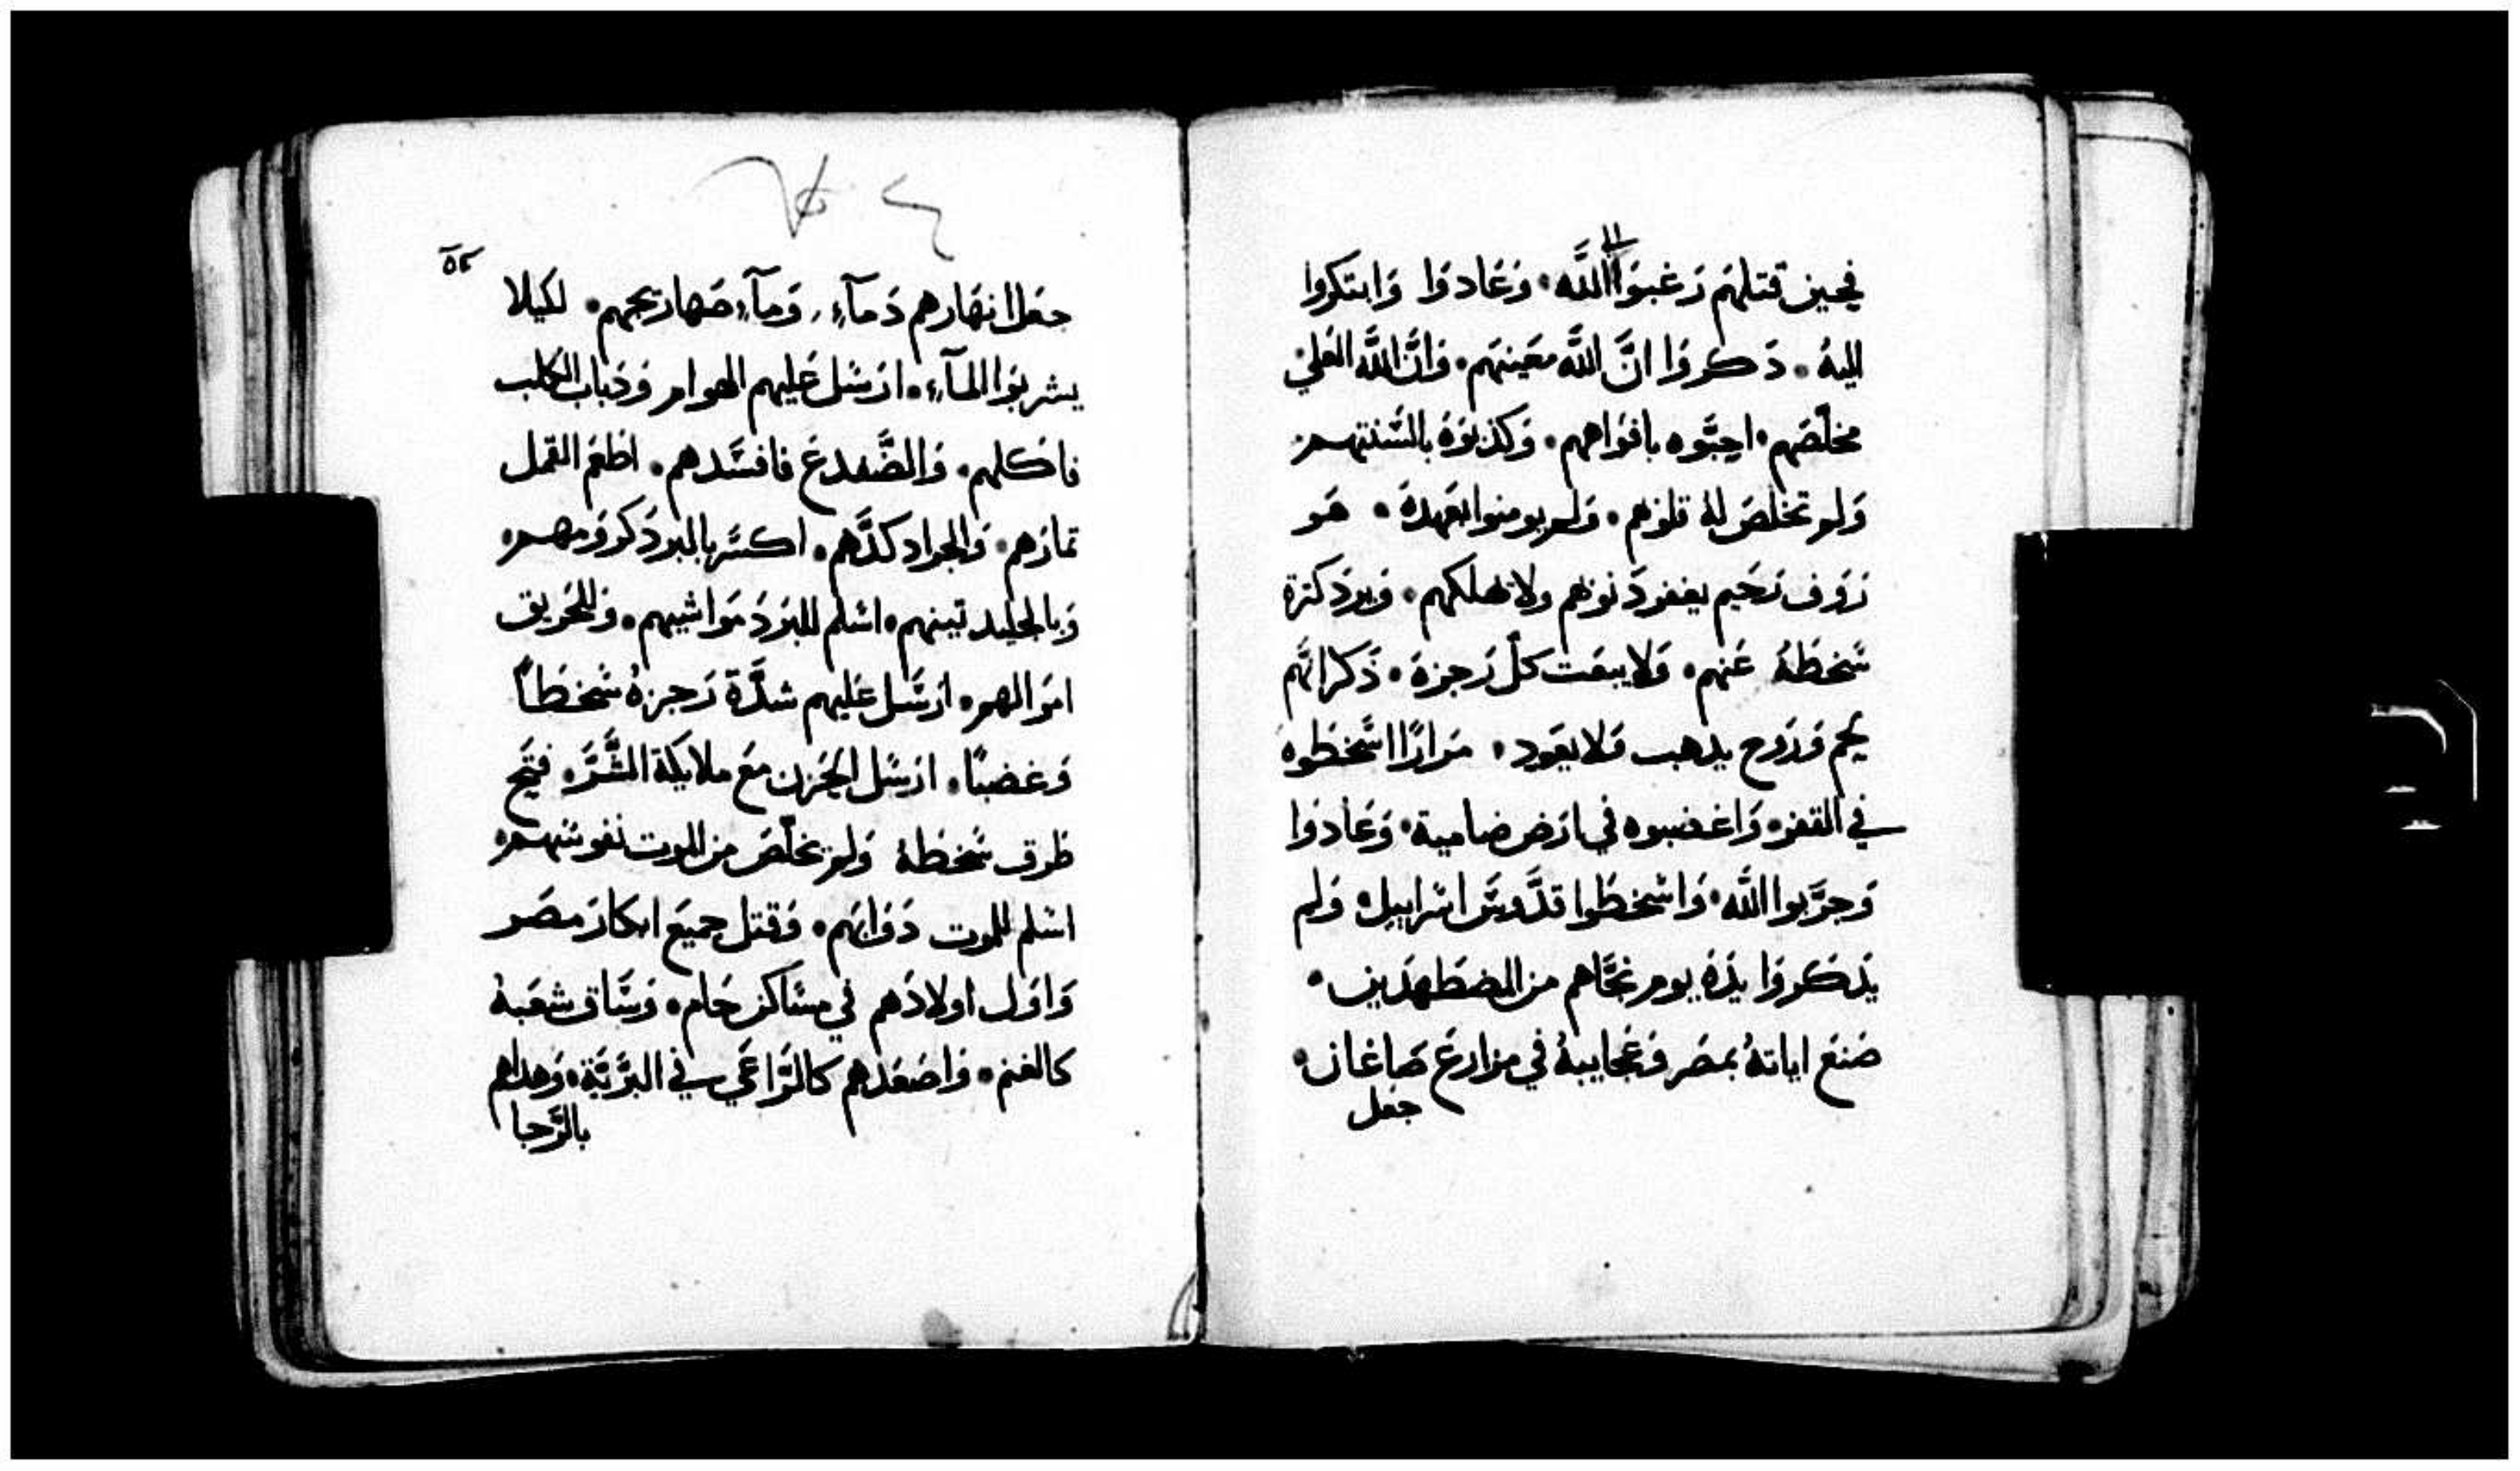 فحين قتلهم رَغبوَا الى اللَّه • وَعَادوَا وَابتكروا
اليهُ • ذَكروَا انَّ اللَّه معَينهَم • وَانَّ اللَّه العَلي
مخلّصَهم • احبَّوه بافوَاههم • وَكذبوَهُ بالسَنتهم
وَلم تخلصَ لهُ قلوَبهم • وَلم يومنوا بعَهدهَ • هَو
رَوَف رَحَيم يغفر ذَنوبَهم ولا يهلكهم • وَيردَ كثرة
سَخطَهُ عَنهم • وَلا يبعَث كلّ رَجزهَ • ذَكر انَّهم
لحم وَروَح يذهب وَلا يعَود • مَرارًا اسَخطَوه
في القفر • وَاغضبوه في ارَض ضامية • وَعَادوَا
وَجرَّبوا اللَّه • وَاسَخطَوا قدَّوسَ اسَراييل • وَلم
يذَكروَا يدَهُ يوم نجَّاهم من المضطَهدَين •
صَنعَ اياتهُ بمصَر وَعَجايبهُ في مزارعَ صَاغان •
جعَل
٥٢
جعَل انهَارهم دَمآءٍ، وَمآءِ صَهاريجهم • لكيلا
يشربوَا المآءِ • ارَسَل عَليهم الهوام وَذباب الكلب
فاكلهم • وَالضَّفدعَ فافسَدهم • اطَعَم القمل
ثمارَهم • وَالجراد كدَّهم • اكسَر بالبردَ كروَمهم •
وَبالجليد تينهم • اسَلم للبرَدَ مَواشيهم • وَللحَريق
اموَالهم • ارَسَل عَليهم شدَّة رَجزهُ سَخطَاً
وَغضبًا • ارَسَل الحَزن معَ ملايكة الشَّرَ • فتحَ
طَرق سَخطَهُ وَلم يخلّصَ من الموت نفوسَهم •
اسَلم للموت دَوَابهَم • وَقتل جميعَ ابكارَ مصَر
وَاوَل اولادَهم في مسَاكن حَام • وَسَاق شعَبهُ
كالغنم • وَاصَعَدَهم كالرَّاعَي في البرَّيَة • وَهداهم
بالرَّجا